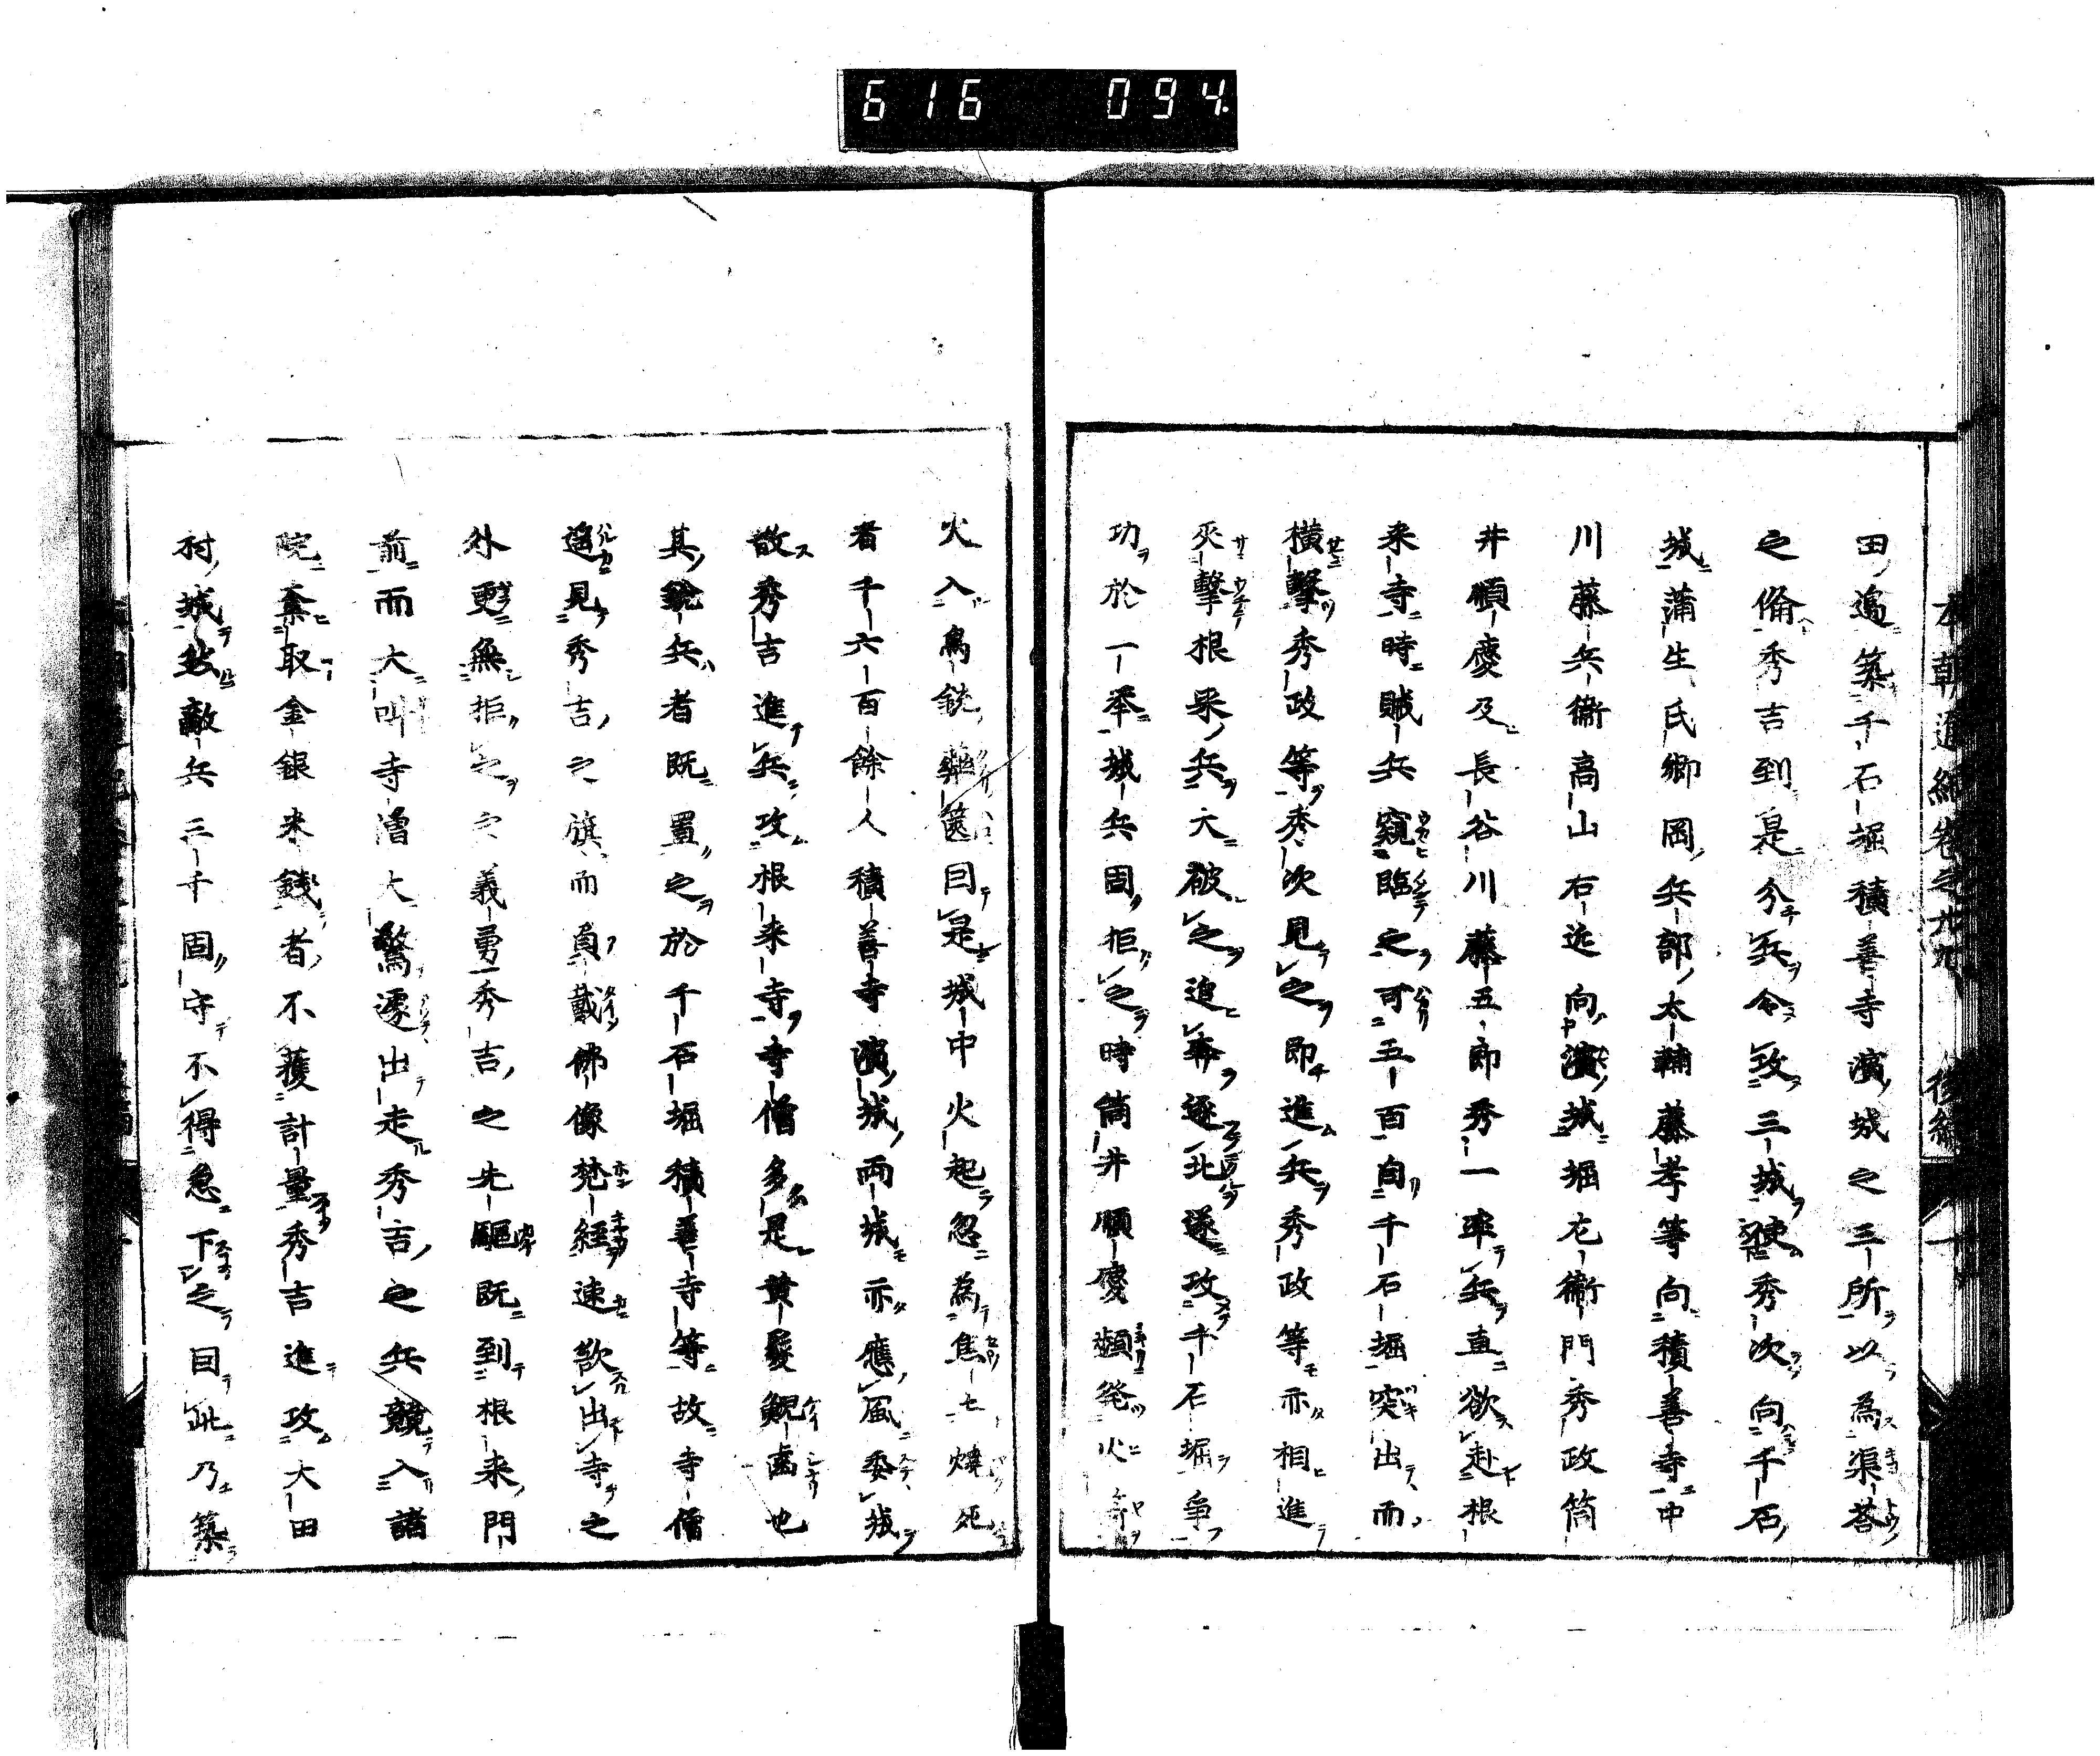 616 094
田邉築千石堀積善寺濱城之三所以為渠荅
之備秀吉到是分兵令攻三城使秀次向千石
城蒲生氏郷岡兵部太輔藤孝等向積善寺中
川藤兵衞髙山右近向濱城堀尢衞門秀政筒
井順慶及長谷川藤五郎秀一率兵直欲赴根
来寺時賊兵窺臨之可五百自千石堀突出而
横擊秀政等秀次見之即進兵秀政等亦相進
夾擊根來兵大破之追奔逐北遂攻千石堀爭
功於一舉城兵固拒之時筒井順慶頻発火
火入鳥銃藥篋囙是城中火起忽為焦土燒死
者千六百餘人積善寺濱城両城亦應風委城
散秀吉進兵攻根来寺寺僧多是黄髮鯢齒也
其銳兵者既置之於千石堀積善寺等故寺僧
遥見秀吉之旗而負戴佛像梵經速欲出寺之
外更無拒之之義勇秀吉之先驅既到根来門
前而大叫寺僧大驚遽出走秀吉之兵競入諸
院棄取金銀米錢者不獲計量秀吉進攻大田
村城然敵兵三千固守不得急下之囙玼乃築